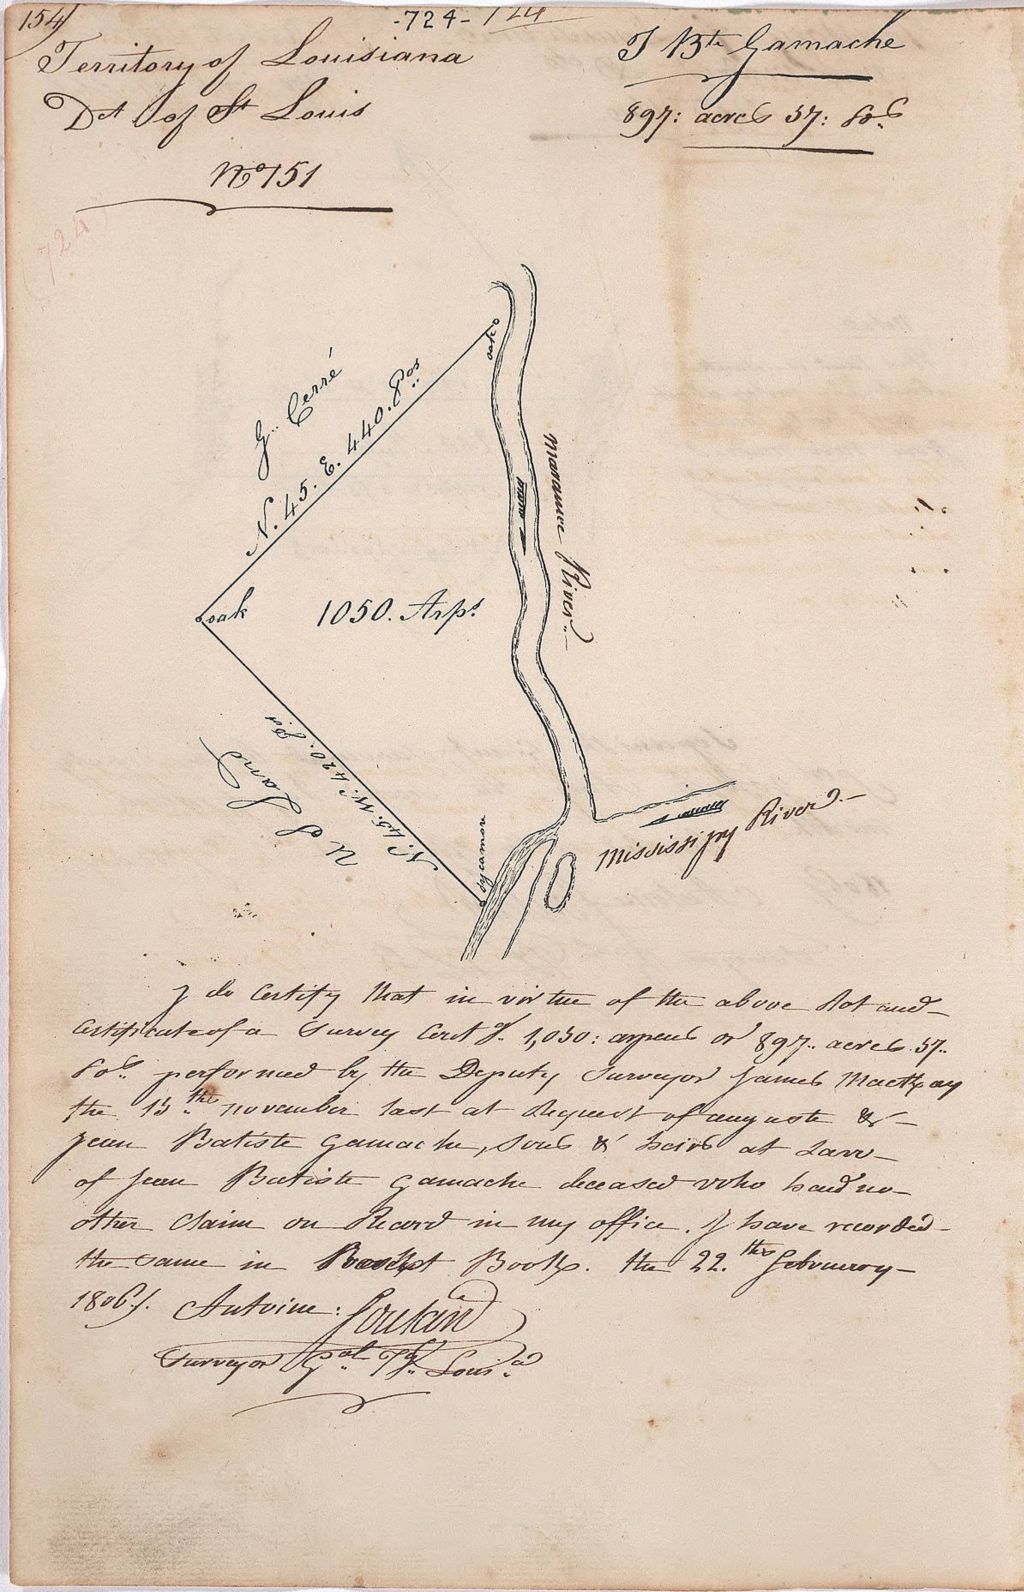 154
-724- 724
Territory of Louisiana
Dct. of St Louis
No 151
J Bte Gamache
897: acres 57: Pos
724
G. Cerré
N. 45. E. 440. Pos
oak
oak
1050. Arps
Maramec River
N. 45. W. 420. Ps
U S Land
Sycamore
Mississipy River
I do Certify that in virtue of the above Plot and
Certificate of a Survey Cont.g 1,050: arpens or 897.. acres 57..
Pos. performed by the Deputy Surveyor James Mackay
the 15.th november last at Request of auguste &
Jean Batiste Gamache, Sons & heirs at Law
of Jean Batiste Gamache deceased who had no
other Claim on Record in my office. I have recorded
the same in Book. the 22.th february
1806. Antoine: Soulard
Surveyor Gal. Ty. Louis.a